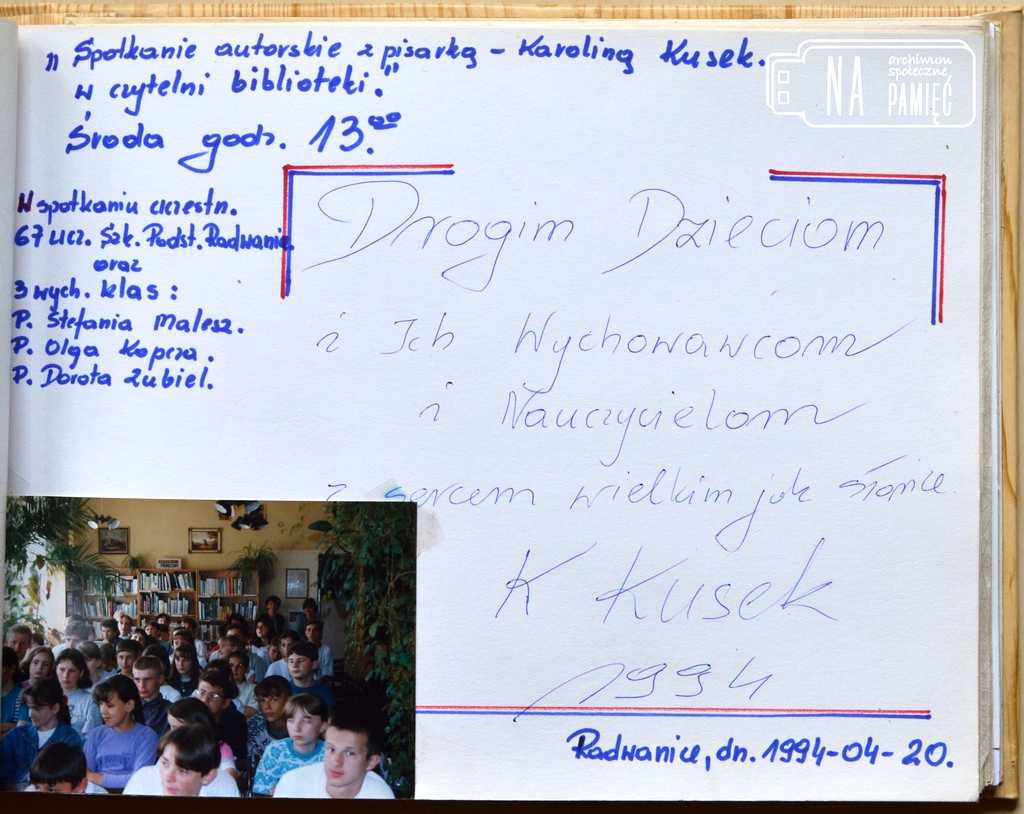 „Spotkanie autorskie z pisarką – Karoliną Kusek.
w czytelni biblioteki."
Środa godz. 13.⁰⁰
W spotkaniu uczestn.
67 ucz. Szk. Podst. Radwanice
oraz
3 wych. klas :
P. Stefania Malesz.
P. Olga Kopcza.
P. Dorota Zubiel.
Drogim Dzieciom
i Ich Wychowawcom
i Nauczycielom
z sercem wielkim jak słońce
K Kusek
1994
Radwanice, dn. 1994-04-20.
NA
archiwum
społeczne
PAMIĘĆ